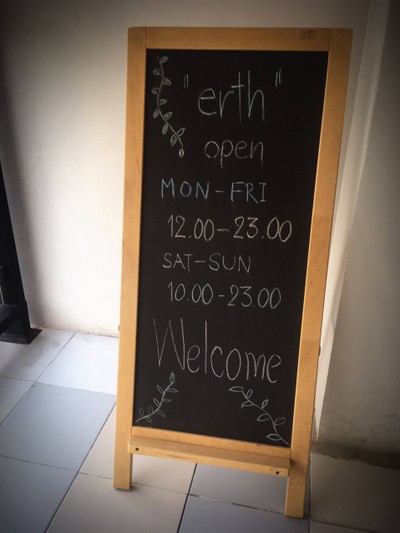 "erth"
open
MON-FRI
12.00-23.00
SAT-SUN
10.00-23.00
Welcome